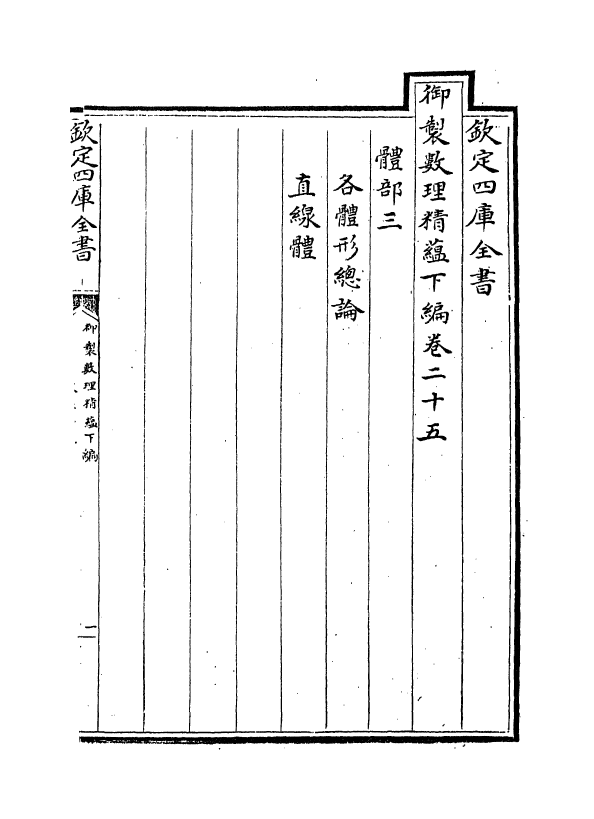 欽定四庫全書
御製數理精蘊下編卷二十五
體部三
各體形總論
直線體
欽定四庫全書
御製數理精蘊下編
一